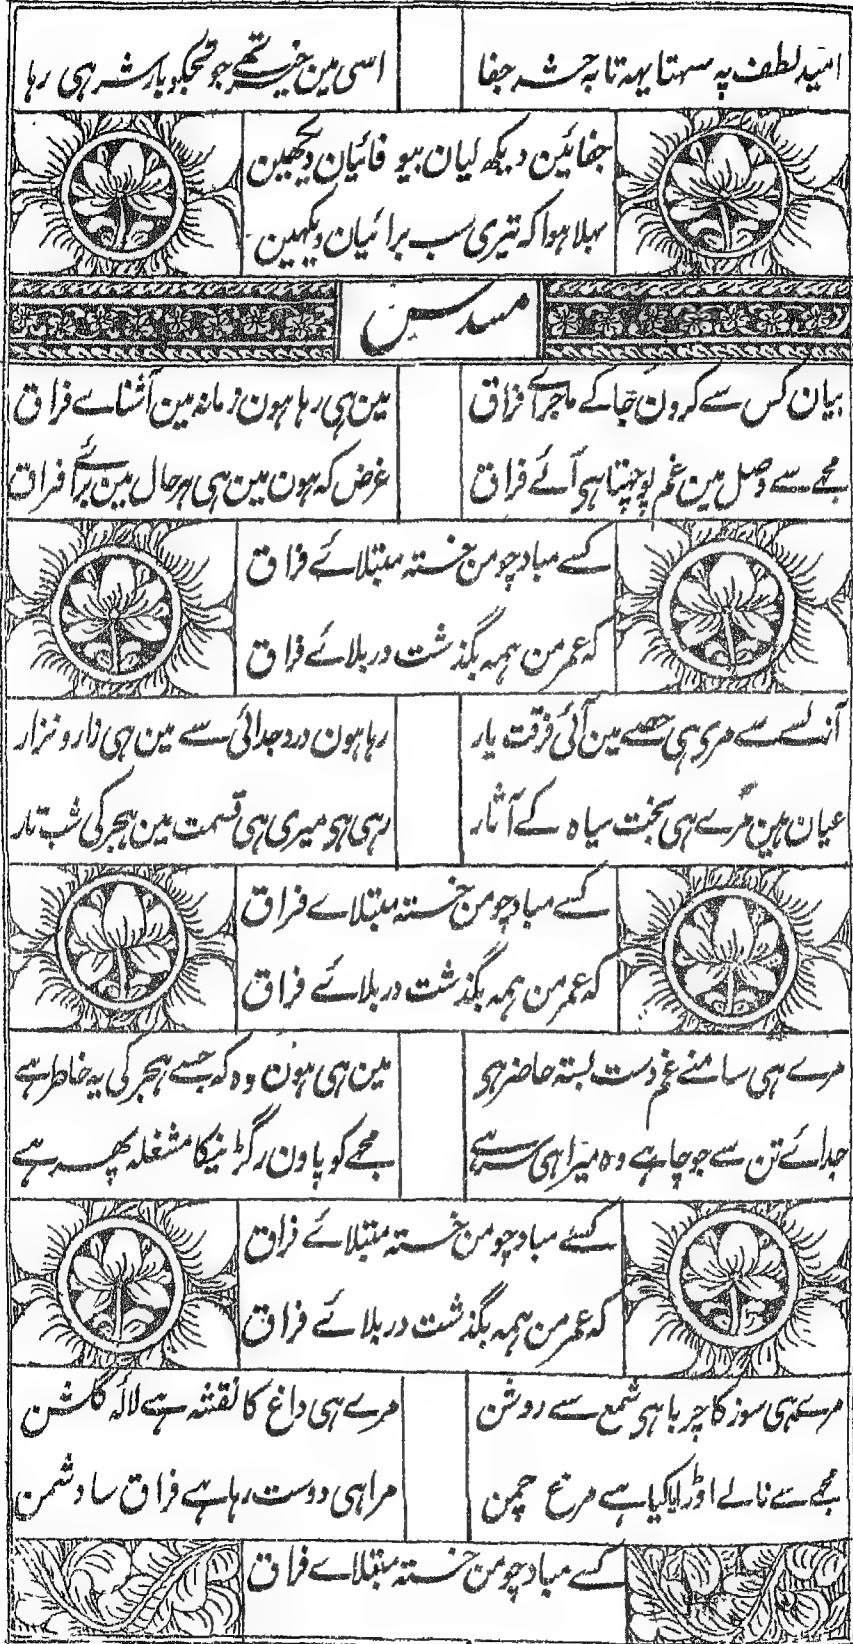 امید لطف پہ سہتا یہ تا بہ حشر جفا
اسی مین خیر تھے جو تجکو یار شر ہی رہا
جفائین دیکھ لیان بیوفائیان دیکھین
بہلا ہوا کہ تیری سب برائیان دیکہین
مسدس
بیان کس سے کرون جاکے ماجرائے فراق
مین ہی رہا ہون زمانہ مین آشناے فراق
مجھے سے وصل مین غم پوچہتا ہی آئے فراق
غرض کہ ہون مین ہی ہر حال مین برائے فراق
کسے مباد چو من خستہ مبتلائے فراق
کہ عمر من ہمہ بگذشت در بلائے فراق
ازلسے سے مری ہی حصے مین آئی فرقت یار
رہا ہون درد جدائی سے مین ہی زار و نزار
عیان ہین مرے ہی بخت سیاہ کے آثار
رہی ہی میری ہی قسمت مین ہجر کی شب تار
کسے مباد چو من خستہ مبتلاے فراق
کہ عمر من ہمہ بگذشت در بلائے فراق
مرے ہی سامنے غم دست بستہ حاضر ہی
مین ہی ہون وہ کہ جسے ہجر کی یہ خاطر ہے
جدائے تن سے جو چاہے وہ میرا ہی سر ہے
مجھے کو پاون رگڑنیکا مشغلہ پھر ہے
کسے مباد چو من خستہ مبتلائے فراق
کہ عمر من ہمہ بگذشت در بلائے فراق
مرے ہی سوز کا چرہا ہی شمع سے روشن
مرے ہی داغ کا نقشہ ہے لالہ گلشن
مجھے سے نالے اوڑایا کیا ہے مرغ چمن
مرا ہی دوست رہا ہے فراق سا دشمن
کسے مباد چو من خستہ مبتلاے فراق